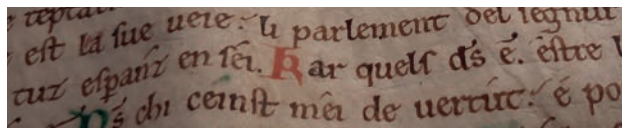 est la sue ueie. li parlement del segnur
tuz espanz en sei. Kar quels ds ē. estre
Ds chi ceinst mei de uertut. é po